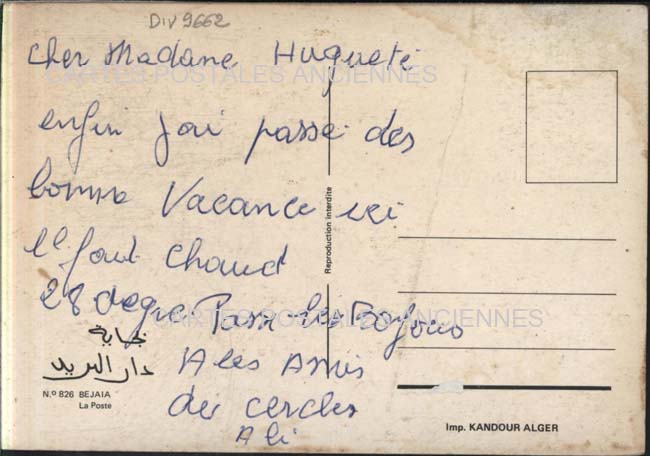 DIV 9662
Cher Madame Huguete
enfin jai passe des
bonne Vacance ici
il faut chaud
28 degre Passe les Bonjour
A les Amis
de cercles
Ali
CARTES POSTALES ANCIENNES
CARTES POSTALES ANCIENNES
Reproduction interdite
بجاية
دار البريد
N.º 826 BEJAIA
La Poste
Imp. KANDOUR ALGER